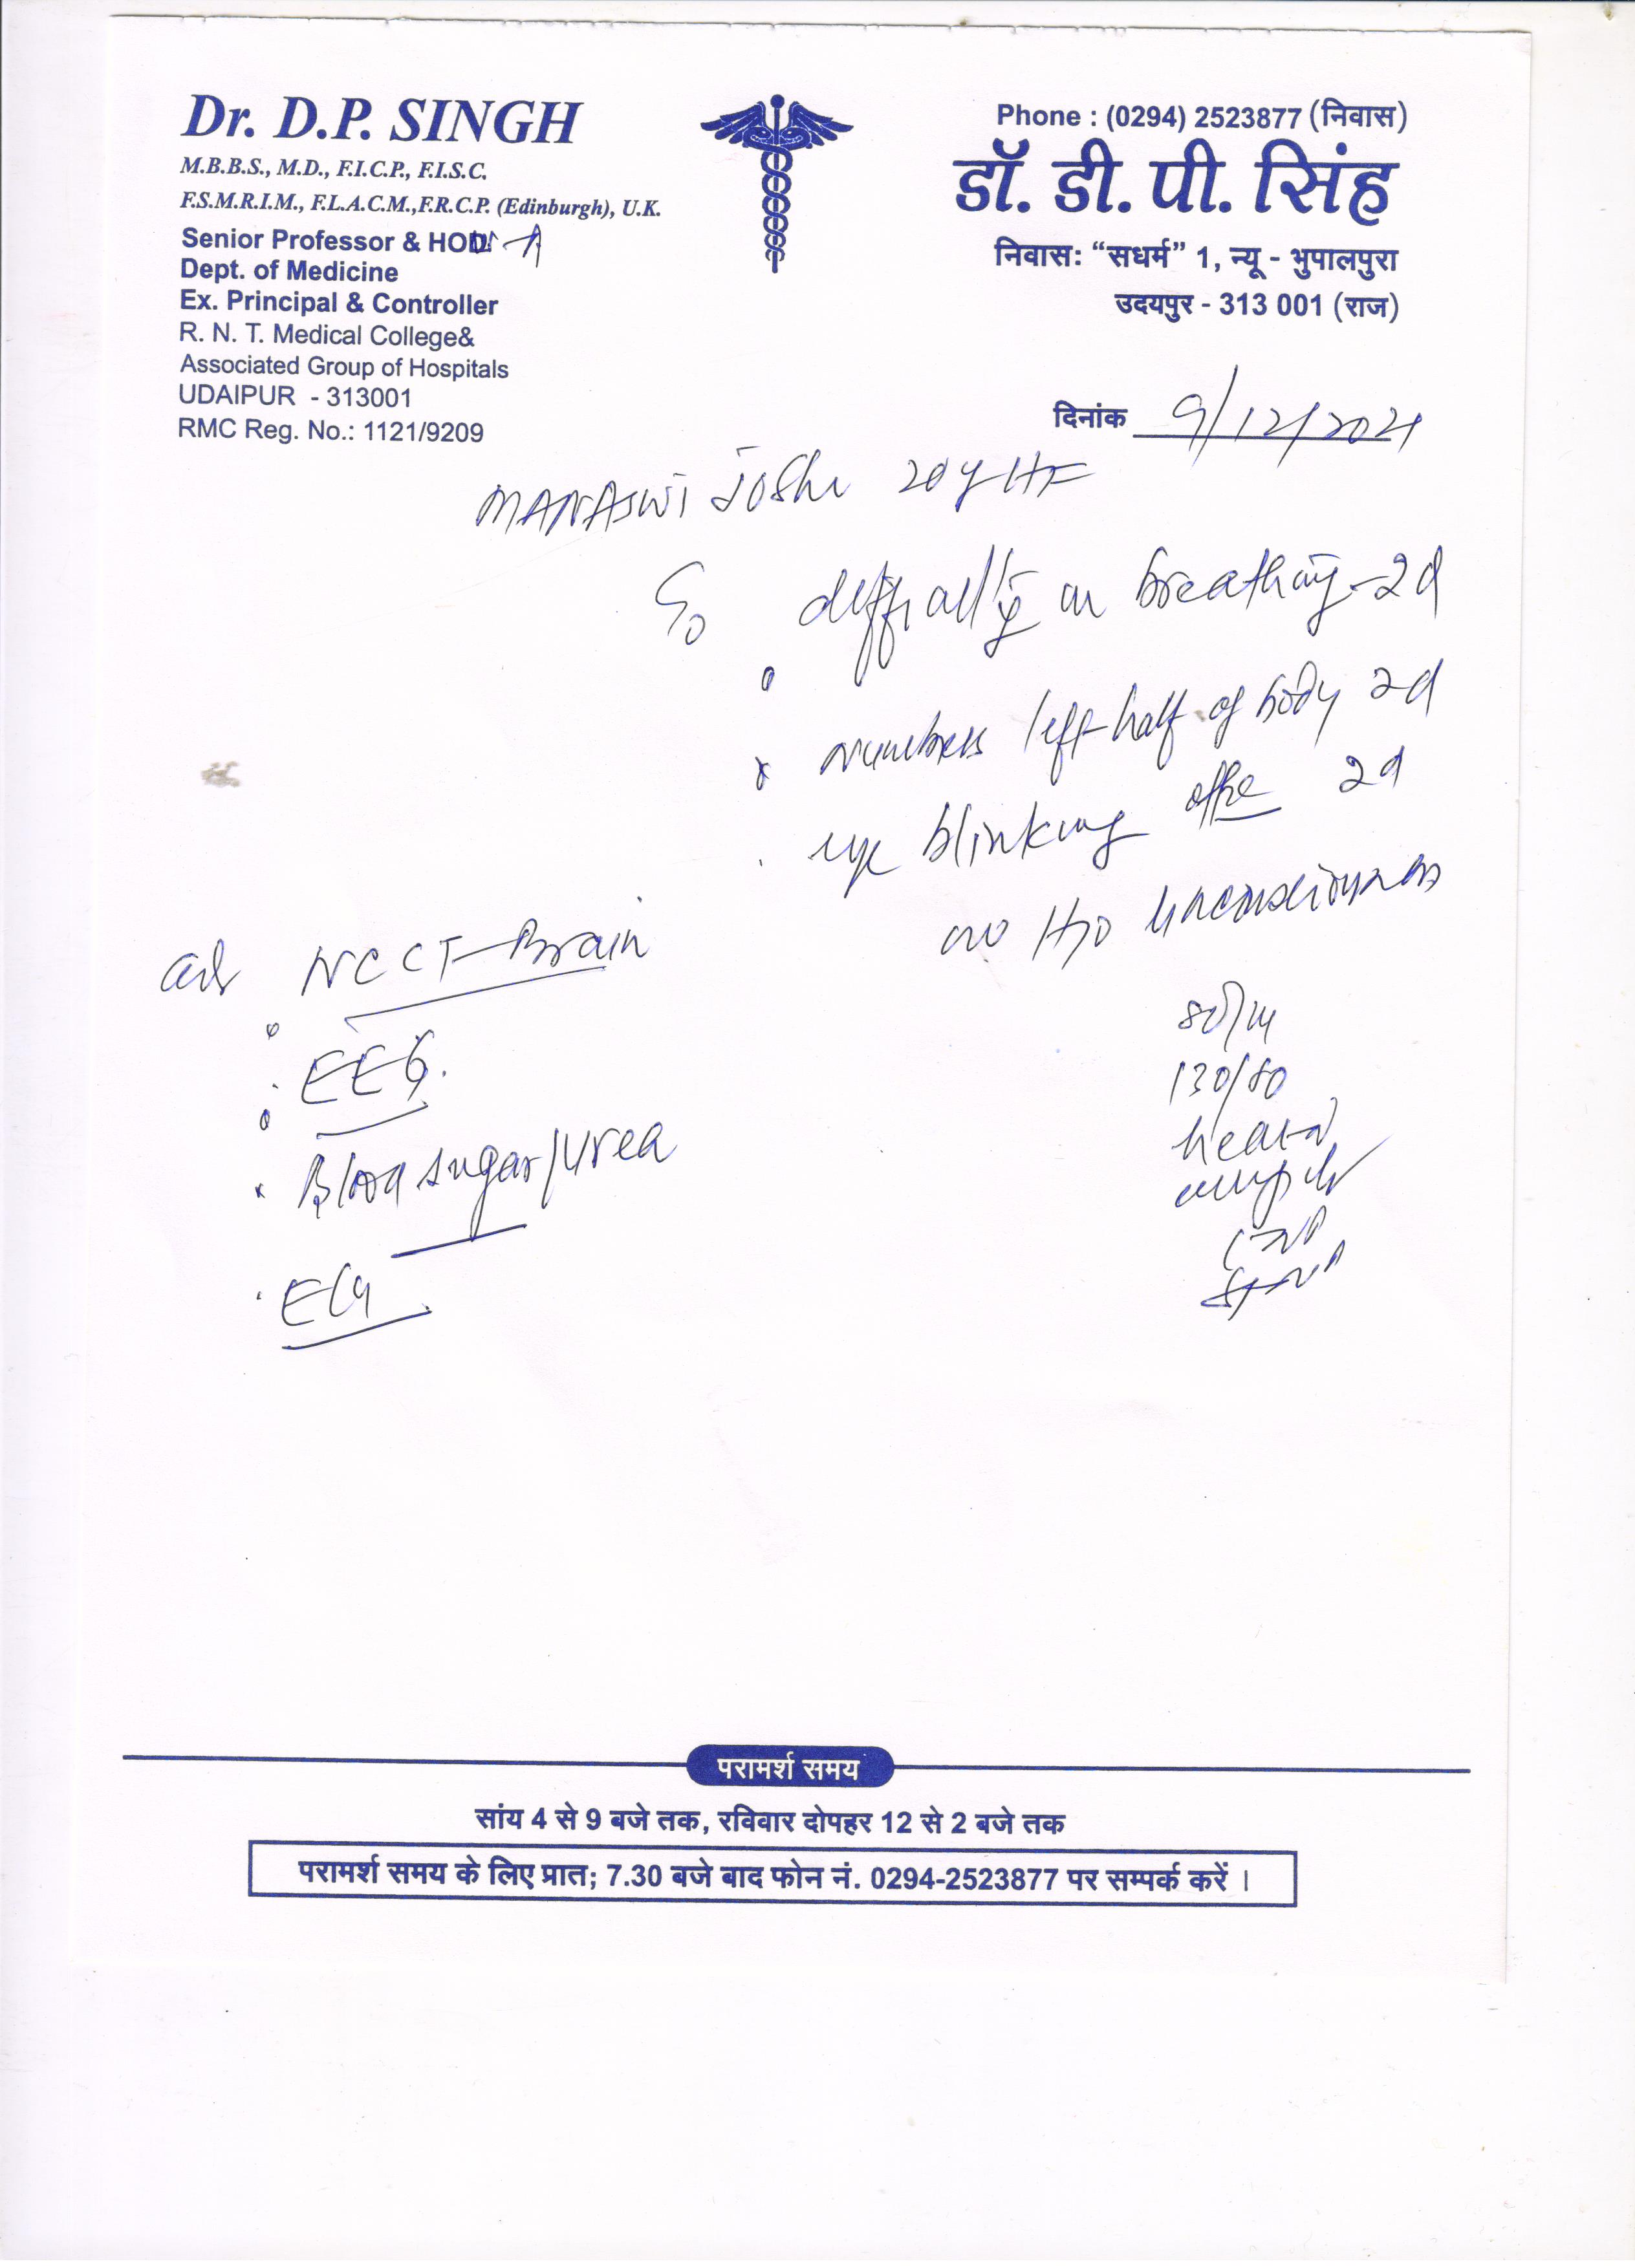 Dr. D.P. SINGH
M.B.B.S., M.D., F.I.C.P., F.I.S.C.
F.S.M.R.I.M., F.L.A.C.M.,F.R.C.P. (Edinburgh), U.K.
Senior Professor & HOD
Dept. of Medicine
Ex. Principal & Controller
R. N. T. Medical College&
Associated Group of Hospitals
UDAIPUR - 313001
RMC Reg. No.: 1121/9209
Phone : (0294) 2523877 (निवास)
डॉ. डी. पी. सिंह
निवास: “सधर्म” 1, न्यू - भुपालपुरा
उदयपुर - 313 001 (राज)
दिनांक 9/12/2021
MANASWI JOShi 20y HF
difficulty in breathing - 2d
numbness left half of body 2d
eye blinking 2d
no H/O unconsciousness
adv NCCT-Brain
EEG.
Blood sugar/urea
ECG
80/m
130/80
heart
परामर्श समय
सांय 4 से 9 बजे तक, रविवार दोपहर 12 से 2 बजे तक
परामर्श समय के लिए प्रात; 7.30 बजे बाद फोन नं. 0294-2523877 पर सम्पर्क करें ।